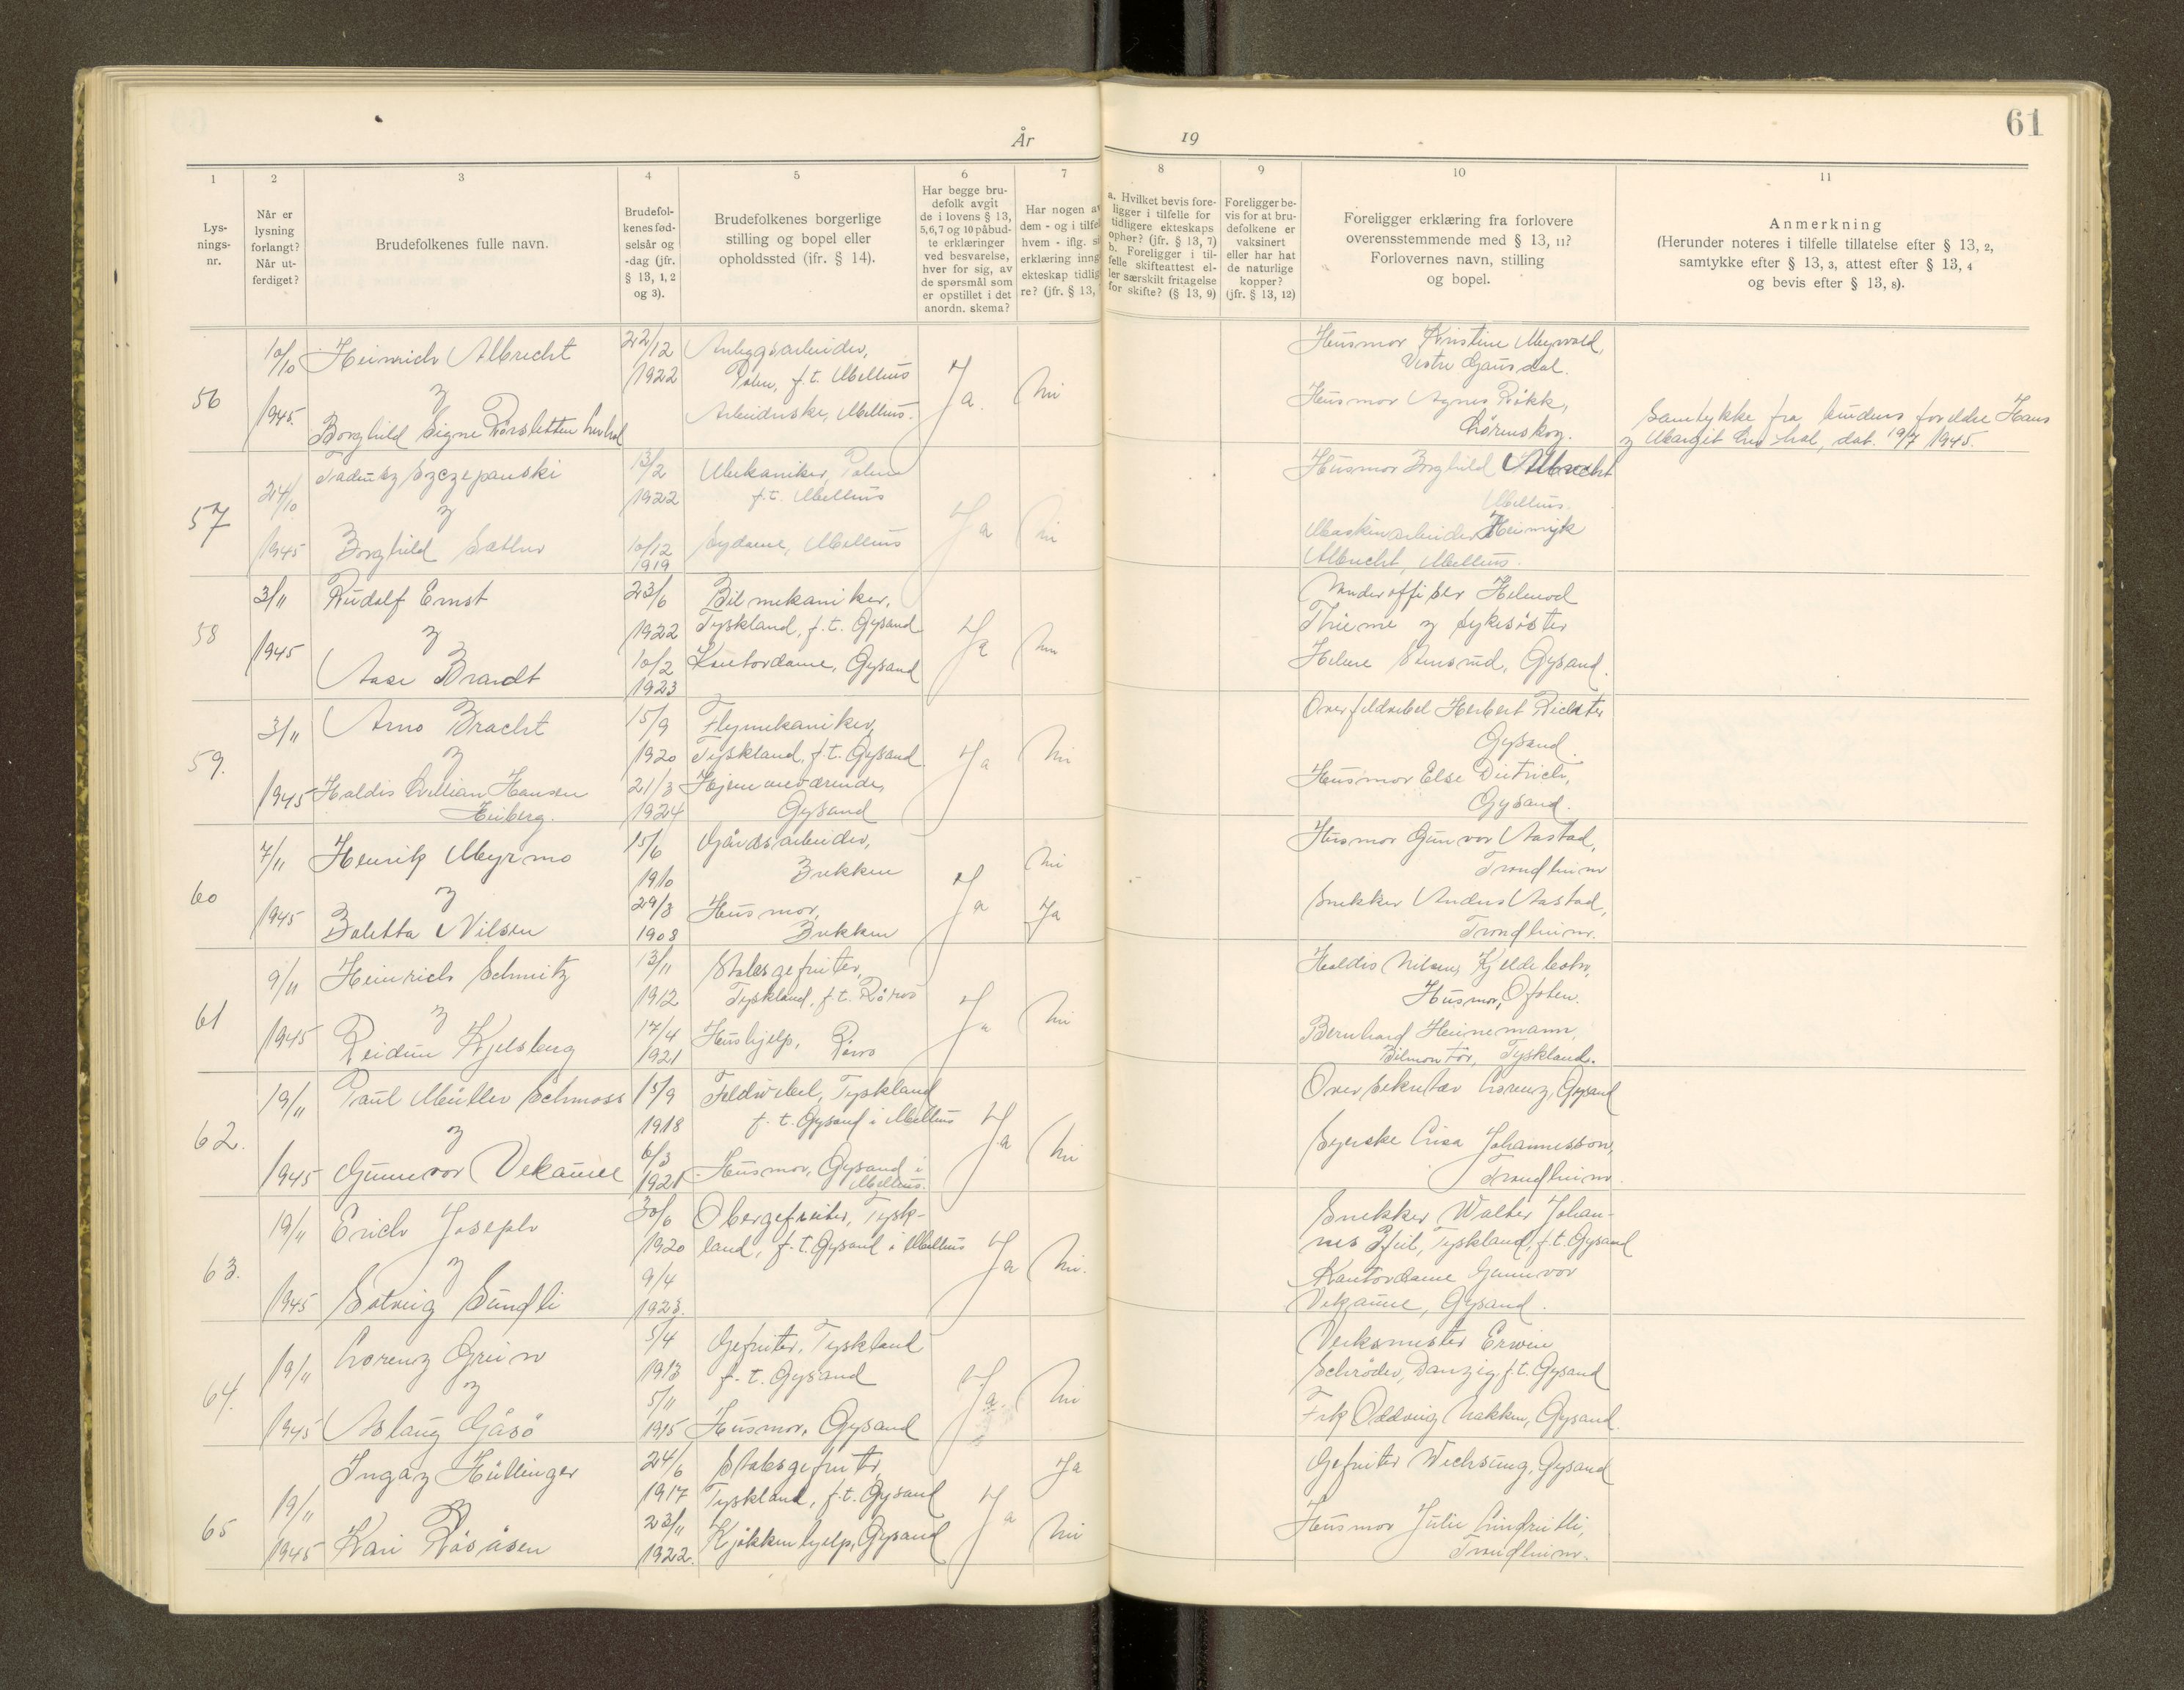 61
År 19
1 2 3 4 5 6 7 8 9 10 11
Lys-
nings-
nr.
Når er
lysning
forlangt?
Når ut-
ferdiget?
Brudefolkenes fulle navn.
Brudefol-
kenes fød-
selsår og
-dag (jfr.
§ 13, 1, 2
og 3).
Brudefolkenes borgerlige
stilling og bopel eller
opholdssted (jfr. § 14).
Har begge bru-
defolk avgit
de i lovens § 13,
5, 6, 7 og 10 påbud-
te erklæringer
ved besvarelse,
hver for sig, av
de spørsmål som
er opstillet i det
anordn. skema?
Har nogen a
dem - og i tilfel
hvem - iflg. s
erklæring inng
ekteskap tidlig
re? (jfr. § 13,
a. Hvilket bevis fore-
ligger i tilfelle for
tidligere ekteskaps
ophør? (jfr. § 13, 7)
b. Foreligger i til-
felle skifteattest el-
ler særskilt fritagelse
for skifte? (§ 13, 9)
Foreligger be-
vis for at bru-
defolkene er
vaksinert
eller har hat
de naturlige
kopper?
(jfr. § 13, 12)
Foreligger erklæring fra forlovere
overensstemmende med § 13, 11?
Forlovernes navn, stilling
og bopel.
Anmerkning
(Herunder noteres i tilfelle tillatelse efter § 13, 2,
samtykke efter § 13, 3, attest efter § 13, 4
og bevis efter § 13, 8).
56
10/10
1945
Heinrich Albrecht
og
Borghild Signe Rørsletten
22/12
1922
Anleggsarbeider,
Polen, f.t. Melhus
Arbeiderske, Melhus.
Ja.
Nei
Husmor Kristine Myrvold,
Vestre Gausdal.
Husmor Agnes Røkk,
Lørenskog.
Samtykke fra brudens foreldre Hans
og Margit dat. 19/7 1945.
57
24/10
1945
Tadeusz Szczepanski
og
Borghild Sæther
13/2
1922
10/12
1919
Mekaniker, Polen
f.t. Melhus
Sydame, Melhus
Ja
Nei
Husmor Borghild Albrecht
Melhus.
Maskinarbeider Heinrijk
Albrecht, Melhus.
58
3/11
1945
Rudolf Ernst
og
Aase Brandt
23/6
1922
10/2
1923
Bilmekaniker,
Tyskland, f.t. Øysand
Kontordame, Øysand
Ja
Nei
Underoffiser
Thieme og sykesøster
Helene Stensrud, Øysand.
59.
3/11
1945
Arno Bracht
og
Haldis Lillian Hansen
Heiberg.
15/9
1920
21/3
1924
Flymekaniker,
Tyskland, f.t. Øysand
Hjemmeværende,
Øysand
Ja
Nei
Overfeldvebel Herbert Richter
Øysand.
Husmor Else Dietrich,
Øysand.
60
7/11
1945
Henrik Myrmo
og
Baletta Nilsen
15/6
1910
29/3
1908
Gårdsarbeider,
Brekken
Husmor,
Brekken
Ja
Nei
Ja
Husmor Gunvor Aastad,
Trondheim
Snekker Anders Aastad,
Trondheim.
61
9/11
1945
Heinrich Schmitz
og
Reidun Kjelsberg
13/11
1912
17/4
1921
Stabsgefreiter,
Tyskland, f.t. Røros
Hushjelp, Røros
Ja
Nei
Haldis Nilsen,
Husmor,
Bernhard Heinemann,
Bilmontør, Tyskland.
62.
19/11
1945
Paul Müller Schmoss
og
Gunnvor Vekaune
15/9
1918
6/3
1921
Feldwebel, Tyskland
f.t. Øysand i Melhus
Husmor, Øysand i
Melhus.
Ja
Nei
Oversekretær Lorenz, Øysand
Syerske Lisa Johannesson,
Trondheim.
63.
19/11
1945
Erich Joseph
og
Solveig Sundli
30/6
1920
9/4
1923.
Obergefreiter, Tysk-
land, f.t. Øysand i Melhus
Ja
Nei.
Snekker Walter Johan-
nes Pfeil, Tyskland, f.t. Øysand
Kontordame Gunnvor
Vekaune, Øysand.
64.
19/11
1945
Lorenz Greim
og
Aslaug Gåsø
5/4
1913
5/11
1915
Gefreiter, Tyskland
f.t. Øysand
Husmor, Øysand
Ja.
Nei
Verksmester Erwin
Schröder, Danzig, f.t. Øysand
Frk Oddveig Bakken, Øysand.
65
19/11
1945
Ingaz Hüttinger
og
Kari Røsåsen
24/6
1917
23/11
1922.
Stabsgefreiter,
Tyskland, f.t. Øysand
Kjøkkenhjelp, Øysand
Ja
Ja
Nei
Gefreiter Wechsung, Øysand
Husmor Julie
Trondheim.